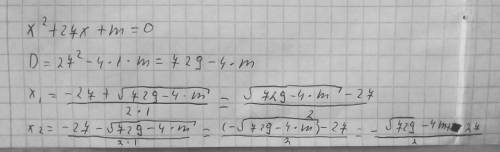 x² + 27x + m = 0
D = 27² - 4 · 1 · m = 729 - 4 · m
x₁ = (-27 + √(729 - 4 · m)) / (2 · 1) = (√(729 - 4 · m) - 27) / 2
x₂ = (-27 - √(729 - 4 · m)) / (2 · 1) = ((-√(729 - 4 · m)) - 27) / 2 = (-√(729 - 4m) 27) / 2